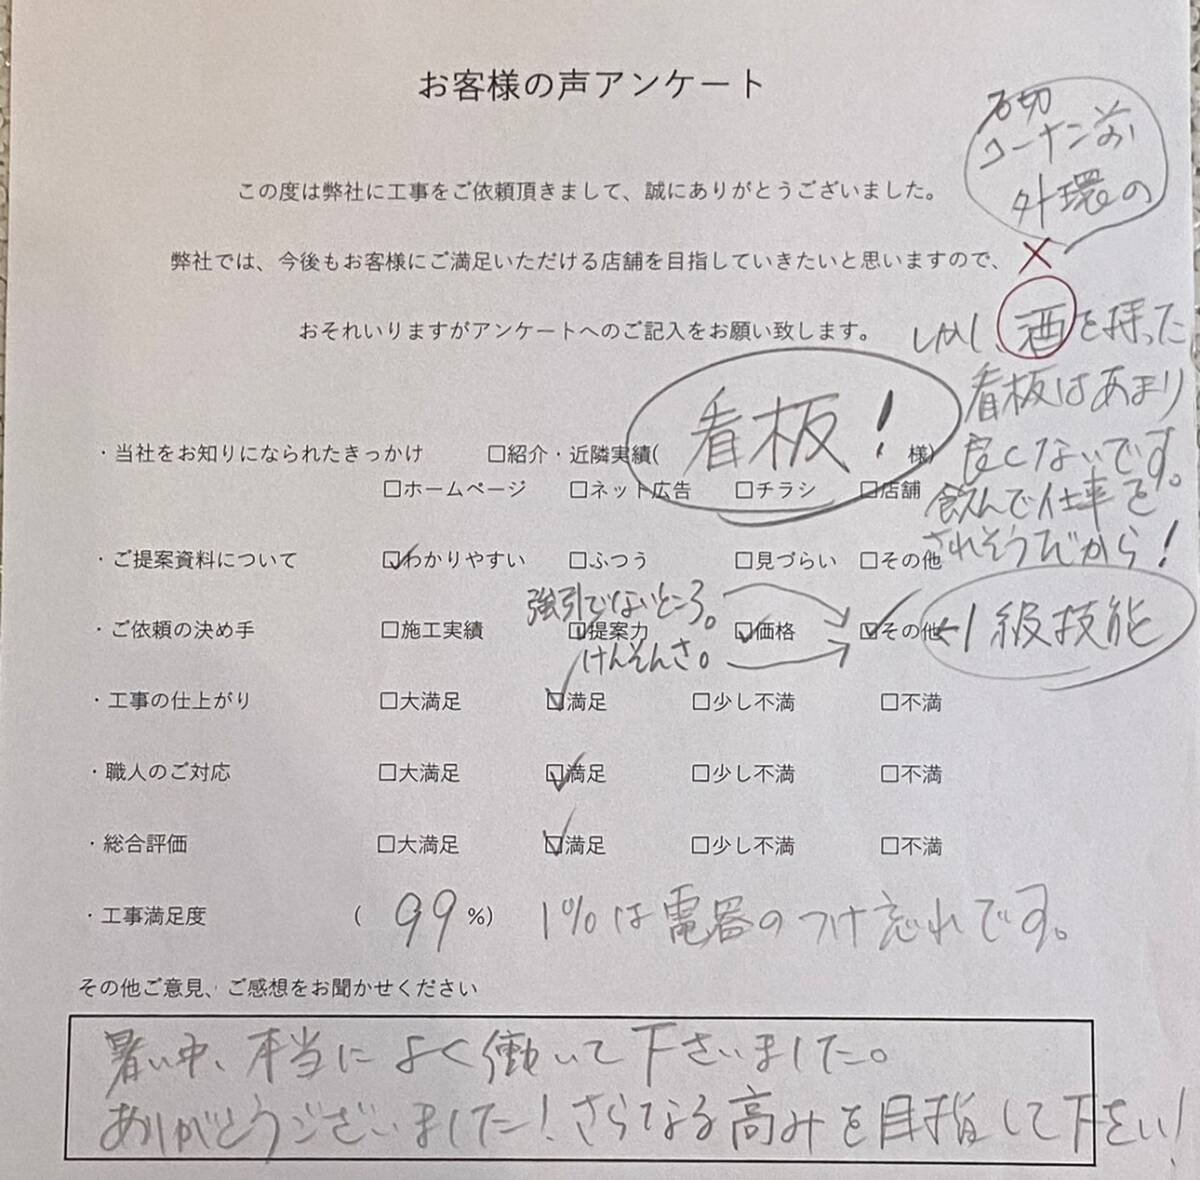 お客様の声アンケート
石切
コーナン前
外環の
この度は弊社に工事をご依頼頂きまして、誠にありがとうございました。
弊社では、今後もお客様にご満足いただける店舗を目指していきたいと思いますので、
おそれいりますがアンケートへのご記入をお願い致します。
しかし、酒を持った
看板はあまり
良くないです。
飲んで仕事を
されそうだから!
・当社をお知りになられたきっかけ □紹介・近隣実績( 看板! 様)
□ホームページ □ネット広告 □チラシ □店舗
・ご提案資料について ☑わかりやすい □ふつう □見づらい □その他
強引でないところ。
・ご依頼の決め手 □施工実績 ☑提案力 ☑価格 ☑その他 ←1級技能
けんそんさ。
・工事の仕上がり □大満足 ☑満足 □少し不満 □不満
・職人のご対応 □大満足 ☑満足 □少し不満 □不満
・総合評価 □大満足 ☑満足 □少し不満 □不満
・工事満足度 ( 99 %) 1%は電器のつけ忘れです。
その他ご意見、ご感想をお聞かせください
暑い中、本当によく働いて下さいました。
ありがとうございました!さらなる高みを目指して下さい!